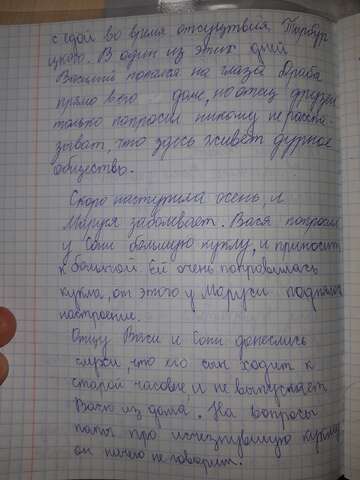 с едой во время отсутствия Тыбур
цкого. В один из этих дней
Василий попался на глаза Драба
прямо в его доме, но отец друзей
только попросил никому не расска
зывать, что здесь живёт дурное
общество.
Скоро наступила осень, и
Маруся заболевает. Вася попросил
у Сони большую куклу, и приносит
к больной. Ей очень понравилась
кукла, от этого у Маруси поднялось
настроение.
Отцу Васи и Сони донеслись
слухи, что его сын ходит к
старой часовне, и не выпускает
Васю из дома. На вопросы
папы про исчезнувшую куклу
он ничего не говорит.